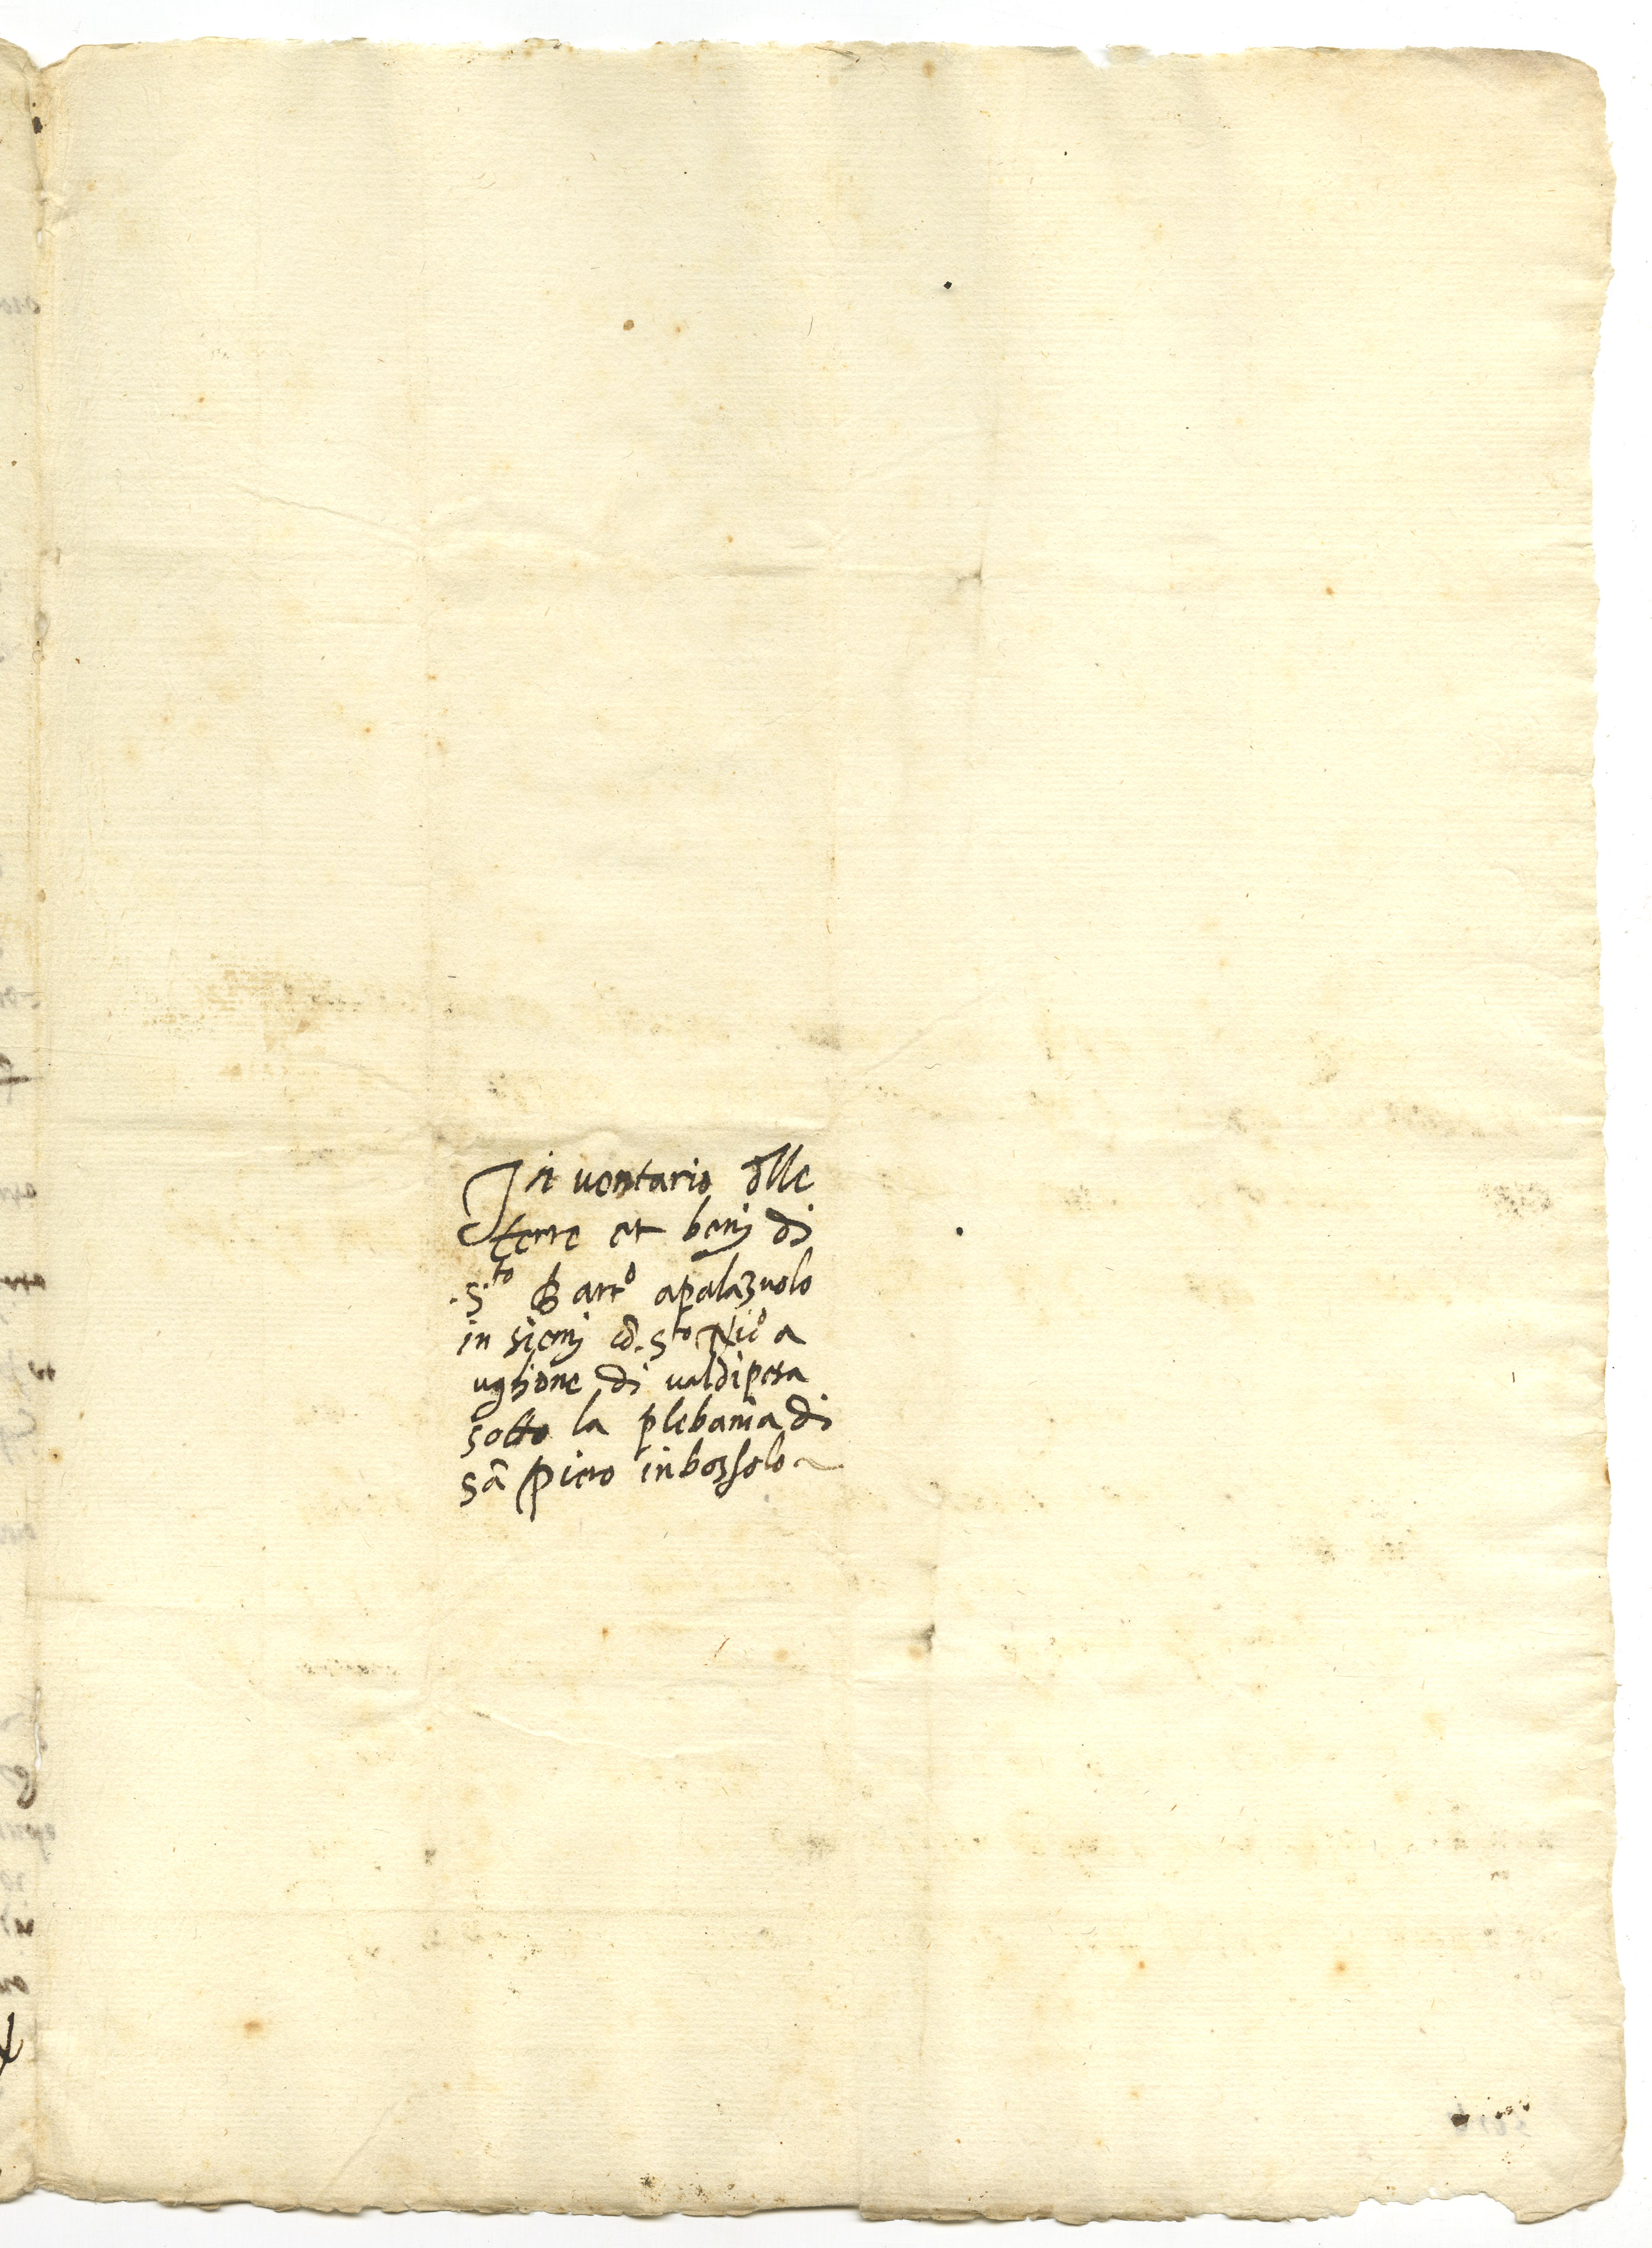 Inventario dlle
terre et benj di
.S.to Bart.o apalazuolo
in siemj cõ .S.to Nic.o a
ughione di valdipesa
sotto la plebania di
sã Piero inbozsolo